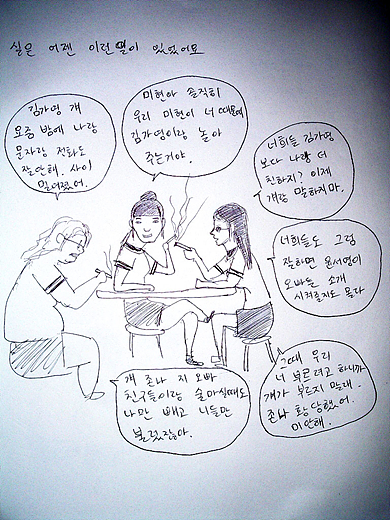 실은 어젠 이런일이 있었어요
김가영 걔
요즘 밤에 나랑
문자랑 전화도
잘안해. 사이
멀어졌어.
미현아 솔직히
우리 미현이 너 때문에
김가영이랑 놀아
주는거야.
너희들 김가영
보다 나랑 더
친하지? 이제
걔랑 말하지마.
너희들도 그럼
잘하면 윤서영이
오빠들 소개
시켜줄지도 몰라
걔 존나 지 오빠
친구들이랑 술마실때도
나만 빼고 니들만
불렀잖아.
그때 우리
너 부르려고 하니까
걔가 부르지 말래.
존나 황당했어.
미안해.